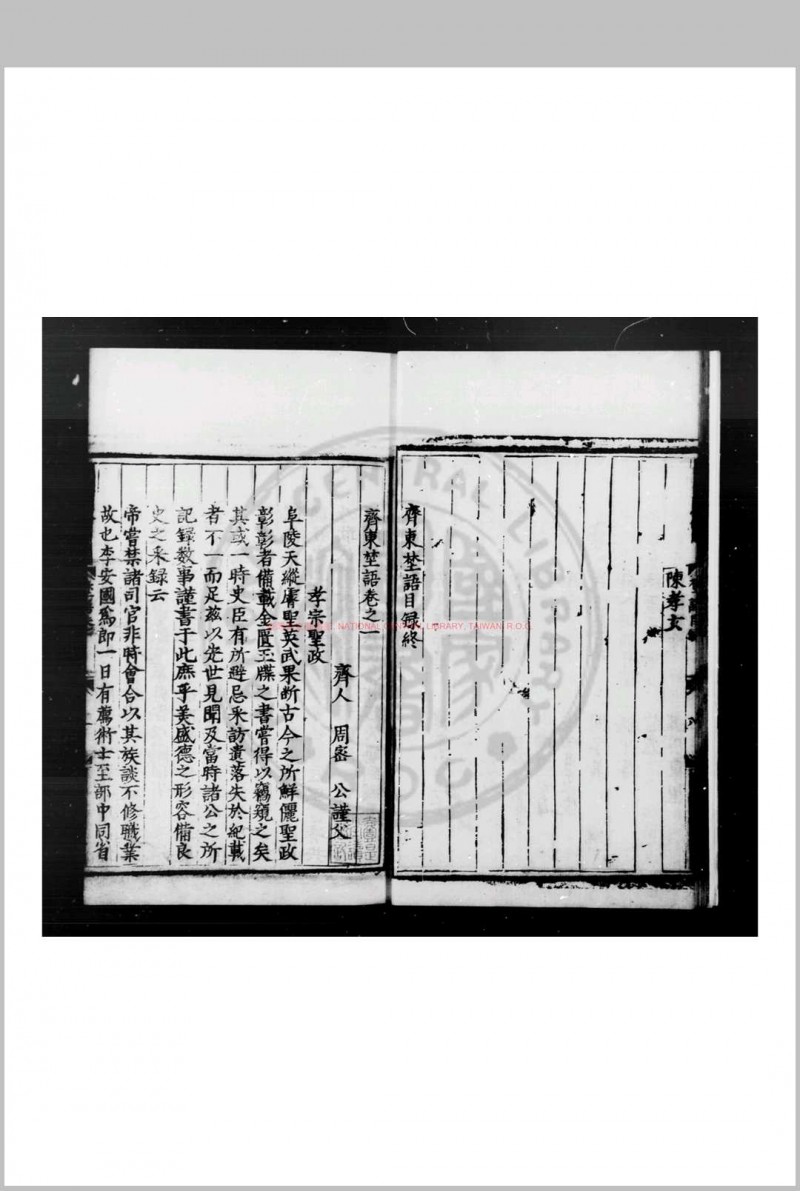 陳孝女
齊東埜語目録終
齊東埜語卷之一
齊人 周密 公謹父
孝宗聖政
阜陵天縱膚聖英武果断古今之所鮮儷聖政
彰彰者備載金匱玉牒之書嘗得以竊窺之矣
其或一時史臣有所避忌采訪遺落失於紀載
者不一而足茲以先世見聞及當時諸公之所
記録数事謹書于此庶乎美盛德之形容備良
史之采録云
帝嘗禁諸司官非時會合以其族談不修職業
故也李安國爲郎一日有薦術士至部中同省
NATIONAL CENTRAL LIBRARY, TAIWAN R.O.C